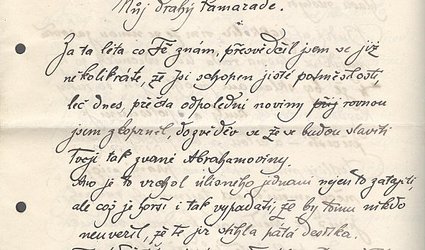 Můj drahý kamaráde.
Za ta léta co Tě znám, přesvědčil jsem se již
několikráte, že Jsi schopen jisté potměšilosti
leč dnes, přečta odpolední noviny přij rovnou
jsem zkoprněl, dozvěděv se že se budou slaviti
Tvoji tak zvané Abrahamoviny.
Ano je to vrchol úlisného jednání nejen to zatajiti,
ale což je horší i tak vypadati, že by tomu nikdo
neuvěřil, že Tě jir stihla pátá desítka.